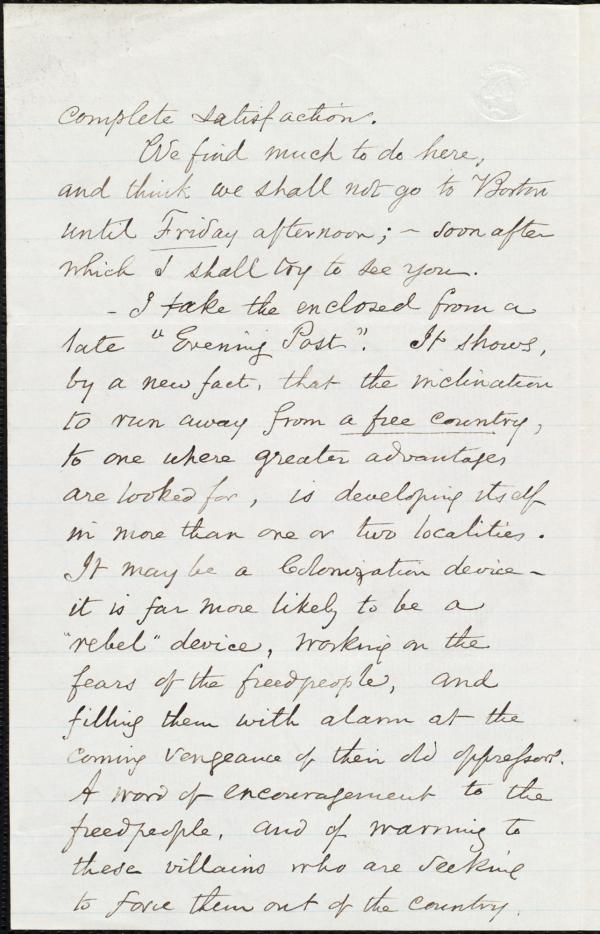 complete satisfaction.
We find much to do here,
and think we shall not go to Boston
until Friday afternoon; - soon after
which I shall try to see you.
- I take the enclosed from a
late "Evening Post". It shows,
by a new fact, that the inclination
to run away from a free country,
to one where greater advantages
are looked for, is developing itself
in more than one or two localities.
It may be a Colonization device -
it is far more likely to be a
"rebel" device, working on the
fears of the freedpeople, and
filling them with alarm at the
coming vengeance of their old oppressors.
A word of encouragement to the
freedpeople, and of warning to
these villains who are seeking
to force them out of the country,